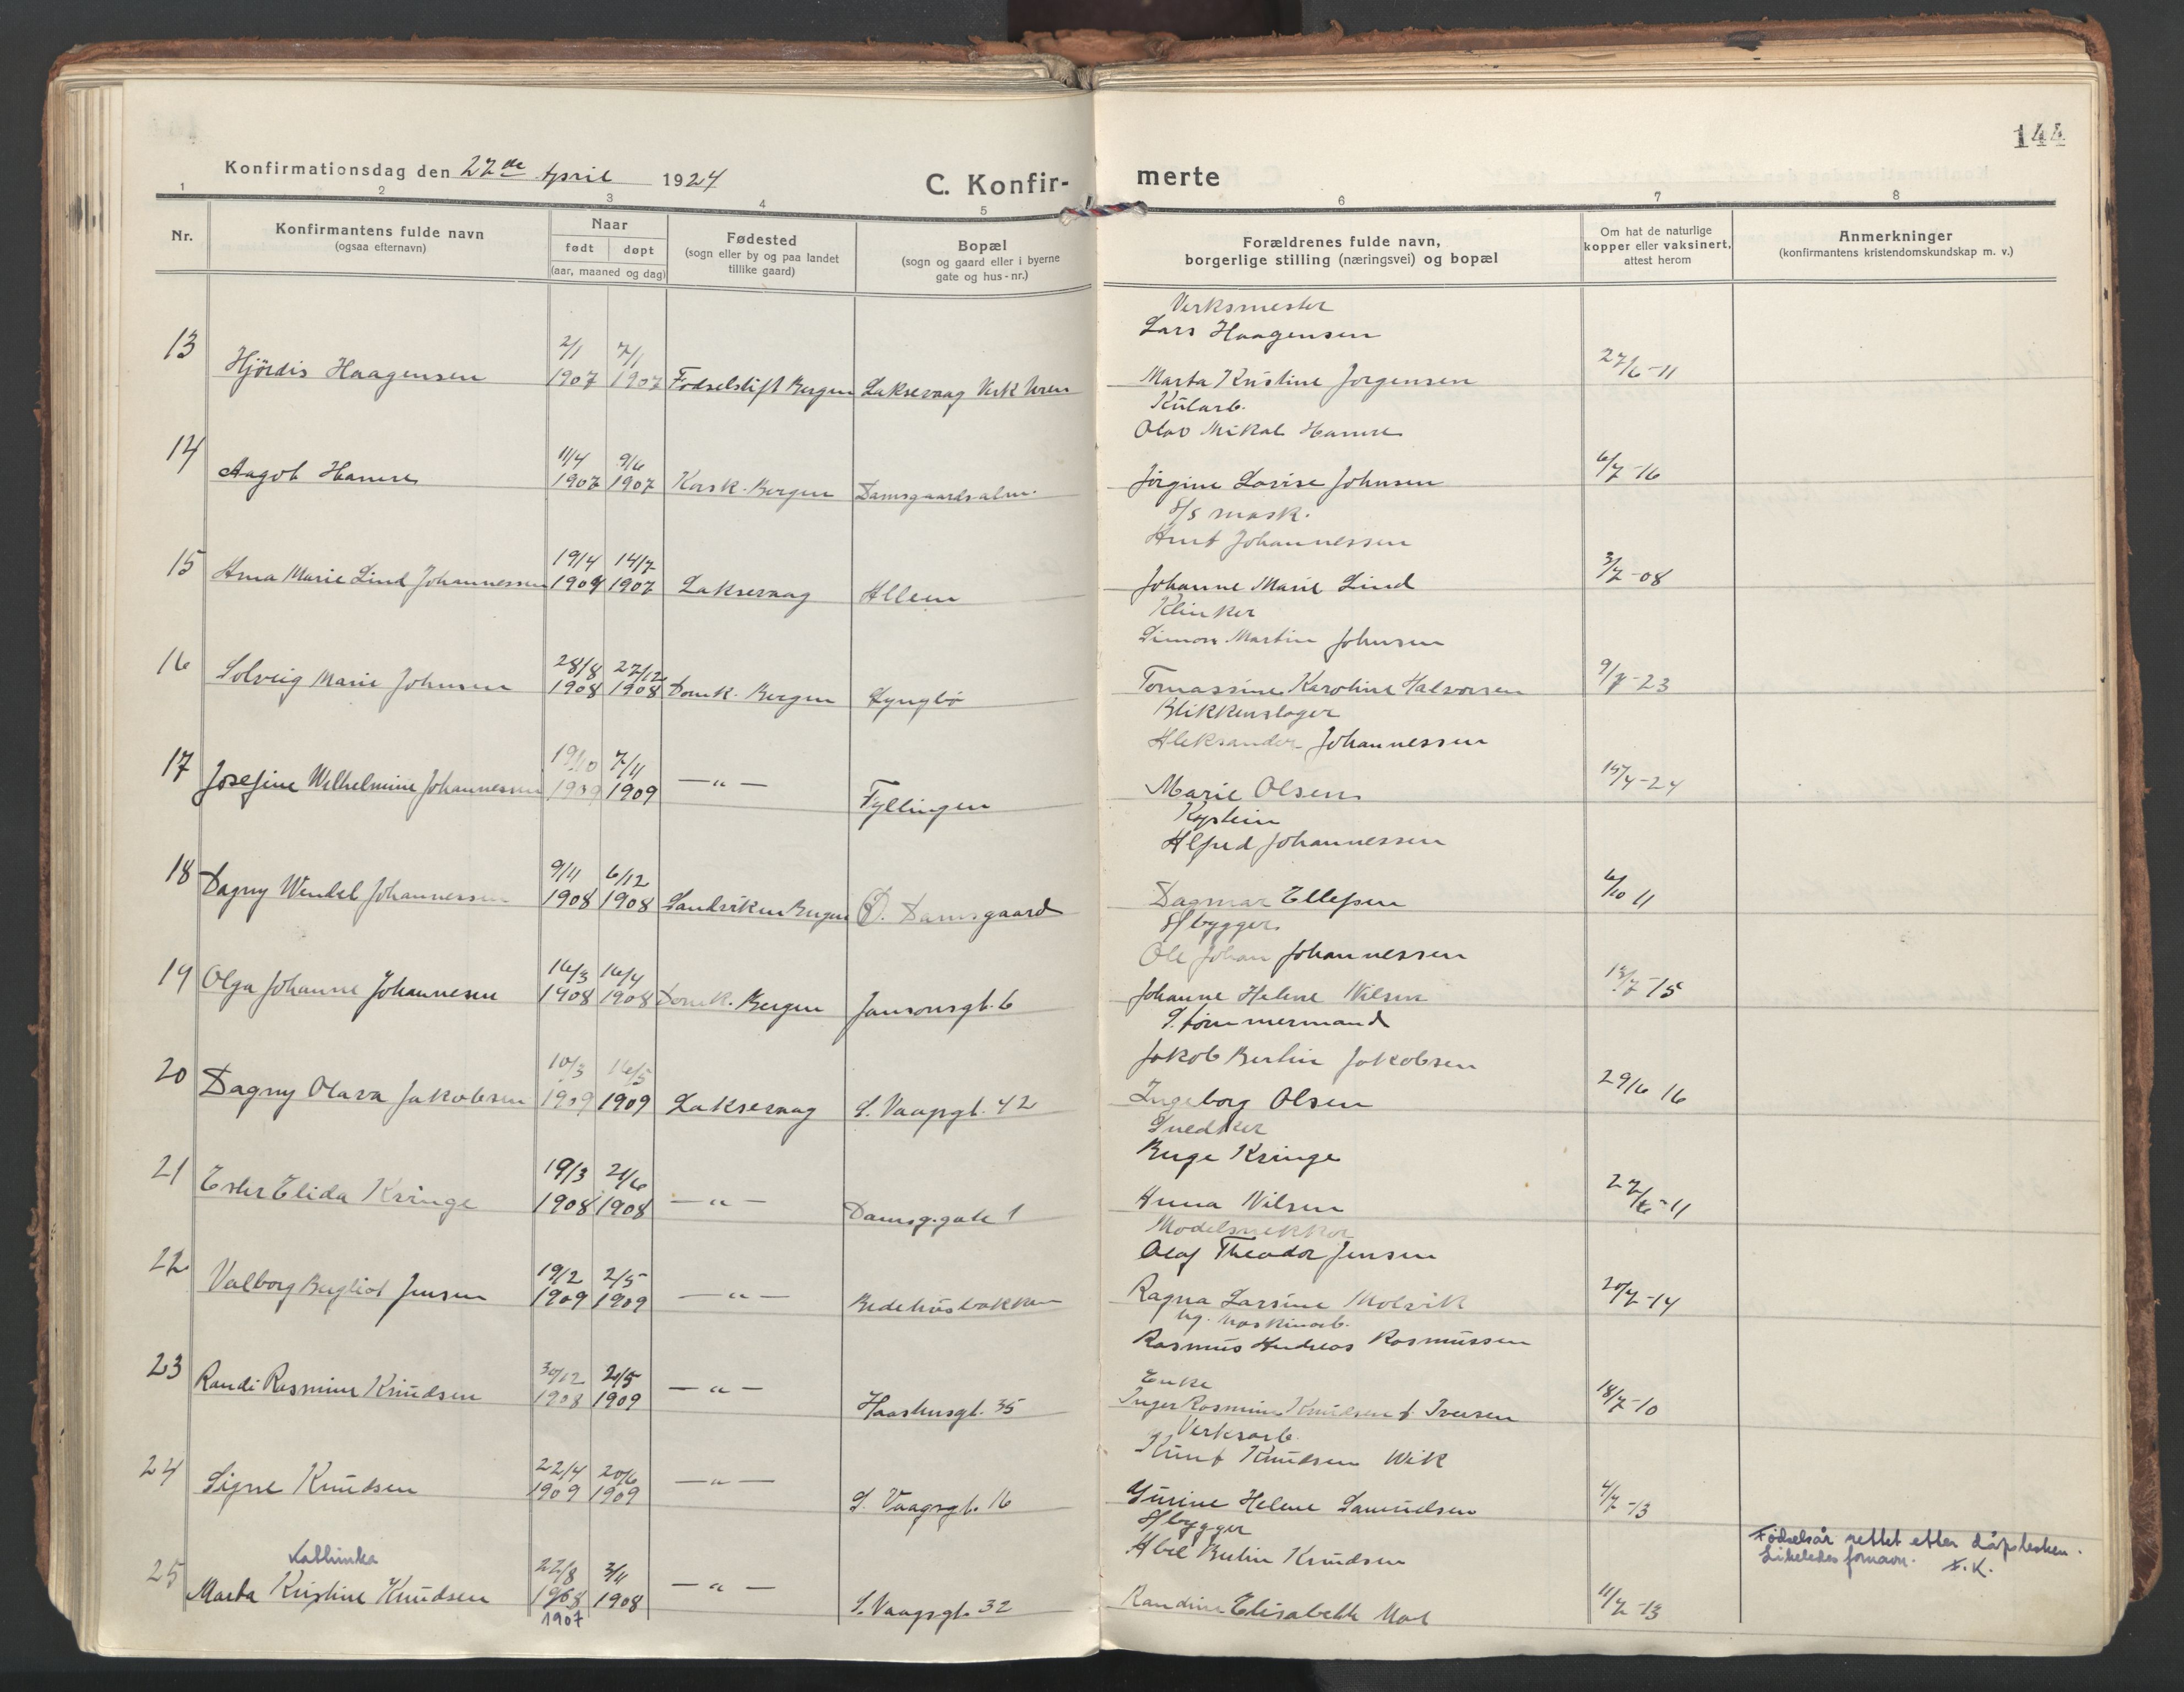 144
Konfirmationsdag den 27de April 1924
C. Konfir-merte
1 2 3 4 5 6 7 8
Nr.
Konfirmantens fulde navn
(ogsaa efternavn)
Naar
født døpt
(aar, maaned og dag)
Fødested
(sogn eller by og paa landet
tillike gaard)
Bopæl
(sogn og gaard eller i byerne
gate og hus-nr.)
Forældrenes fulde navn,
borgerlige stilling (næringsvei) og bopæl
Om hat de naturlige
kopper eller vaksinert,
attest herom
Anmerkninger
(konfirmantens kristendomskundskap m. v.)
Verksmester
Lars Haagensen
13 Hjördis Haagensen 2/1 1907 7/1 1907 Fødselstift Bergen Laksevaag Verk
Marta Kristine Jorgensen 27/6-11
Kularb.
Olav Mikal Hamre
14 Aagot Hamre 11/4 1907 9/6 1907 Korsk. Bergen Damsgaardsalm.
Jörgine Lovise Johnsen 6/7-16
S/s mask.
Knut Johannessen
15 Anna Marie Lind Johannessen 19/4 190 14/7 1907 Laksevaag
Johanne Marie Lind 3/7-08
Klinker
Simon Martin Johnsen
16 Solveig Marie Johnsen 28/8 1908 27/12 1908 Domk. Bergen Lyngbö
Tomassine Karoline Halvorsen 9/7-23
Blikkenslager
Aleksander Johannessen
17 Josefine Wilhelmine Johannessen 19/10 1909 7/11 1909 —"— Fyllingen
Marie Olsen 15/4-24
Kaptein
Alfred Johannessen
18 Dagny Wendel Johannessen 9/11 1908 6/12 1908 Sandviken Bergen Damsgaard
Dagmar Ellefsen 6/10 11
S/bygger
Ole Johan Johannessen
19 Olga Johanne Johannesen 16/3 1908 16/4 1908 Domk. Bergen Jansonsgt. 6
Johanne Helene Nilsen 13/7-15
S. tömmermand
Jakob Bertin Jakobsen
20 Dagny Olava Jakobsen 10/3 1909 16/5 1909 Laksevaag S. Vaagsgt. 42
Ingeborg Olsen 29/6 16
Snedker
Berge Kringe
21 Ester Elida Kringe 19/3 1908 21/6 1908 —"— Damsg.gate 1
Anna Nilsen 27/6-11
Modelsnekker
Olaf Theodor Jensen
22 Valborg Bergliot Jensen 19/2 1909 2/5 1909 —"— Bedehusbakken
Ragna Larsine Molvik 20/7-14
Maskinarb.
Rasmus Andreas Rasmussen
23 Randi Rasmine Knudsen 30/12 1908 2/5 1909 —"— Haashusgt. 35
Enke
Inger Rasmine Knudsen f. Iversen 18/7-10
Verksarb.
Knut Knudsen Wik
24 Signe Knudsen 22/4 1909 20/6 1909 —"— S. Vaagsgt. 16
Gurine Helene Samuelsen 4/7-13
S/bygger
Abel Bertin Knudsen
Kathinka
25 Marta Kristine Knudsen 22/8 1908 3/11 1908 —"— S. Vaagsgt. 32
1907
Randine Elisabeth 11/7-13
Fødselsår rettet etter dåpslisten.
Likeledes fornavn. K.